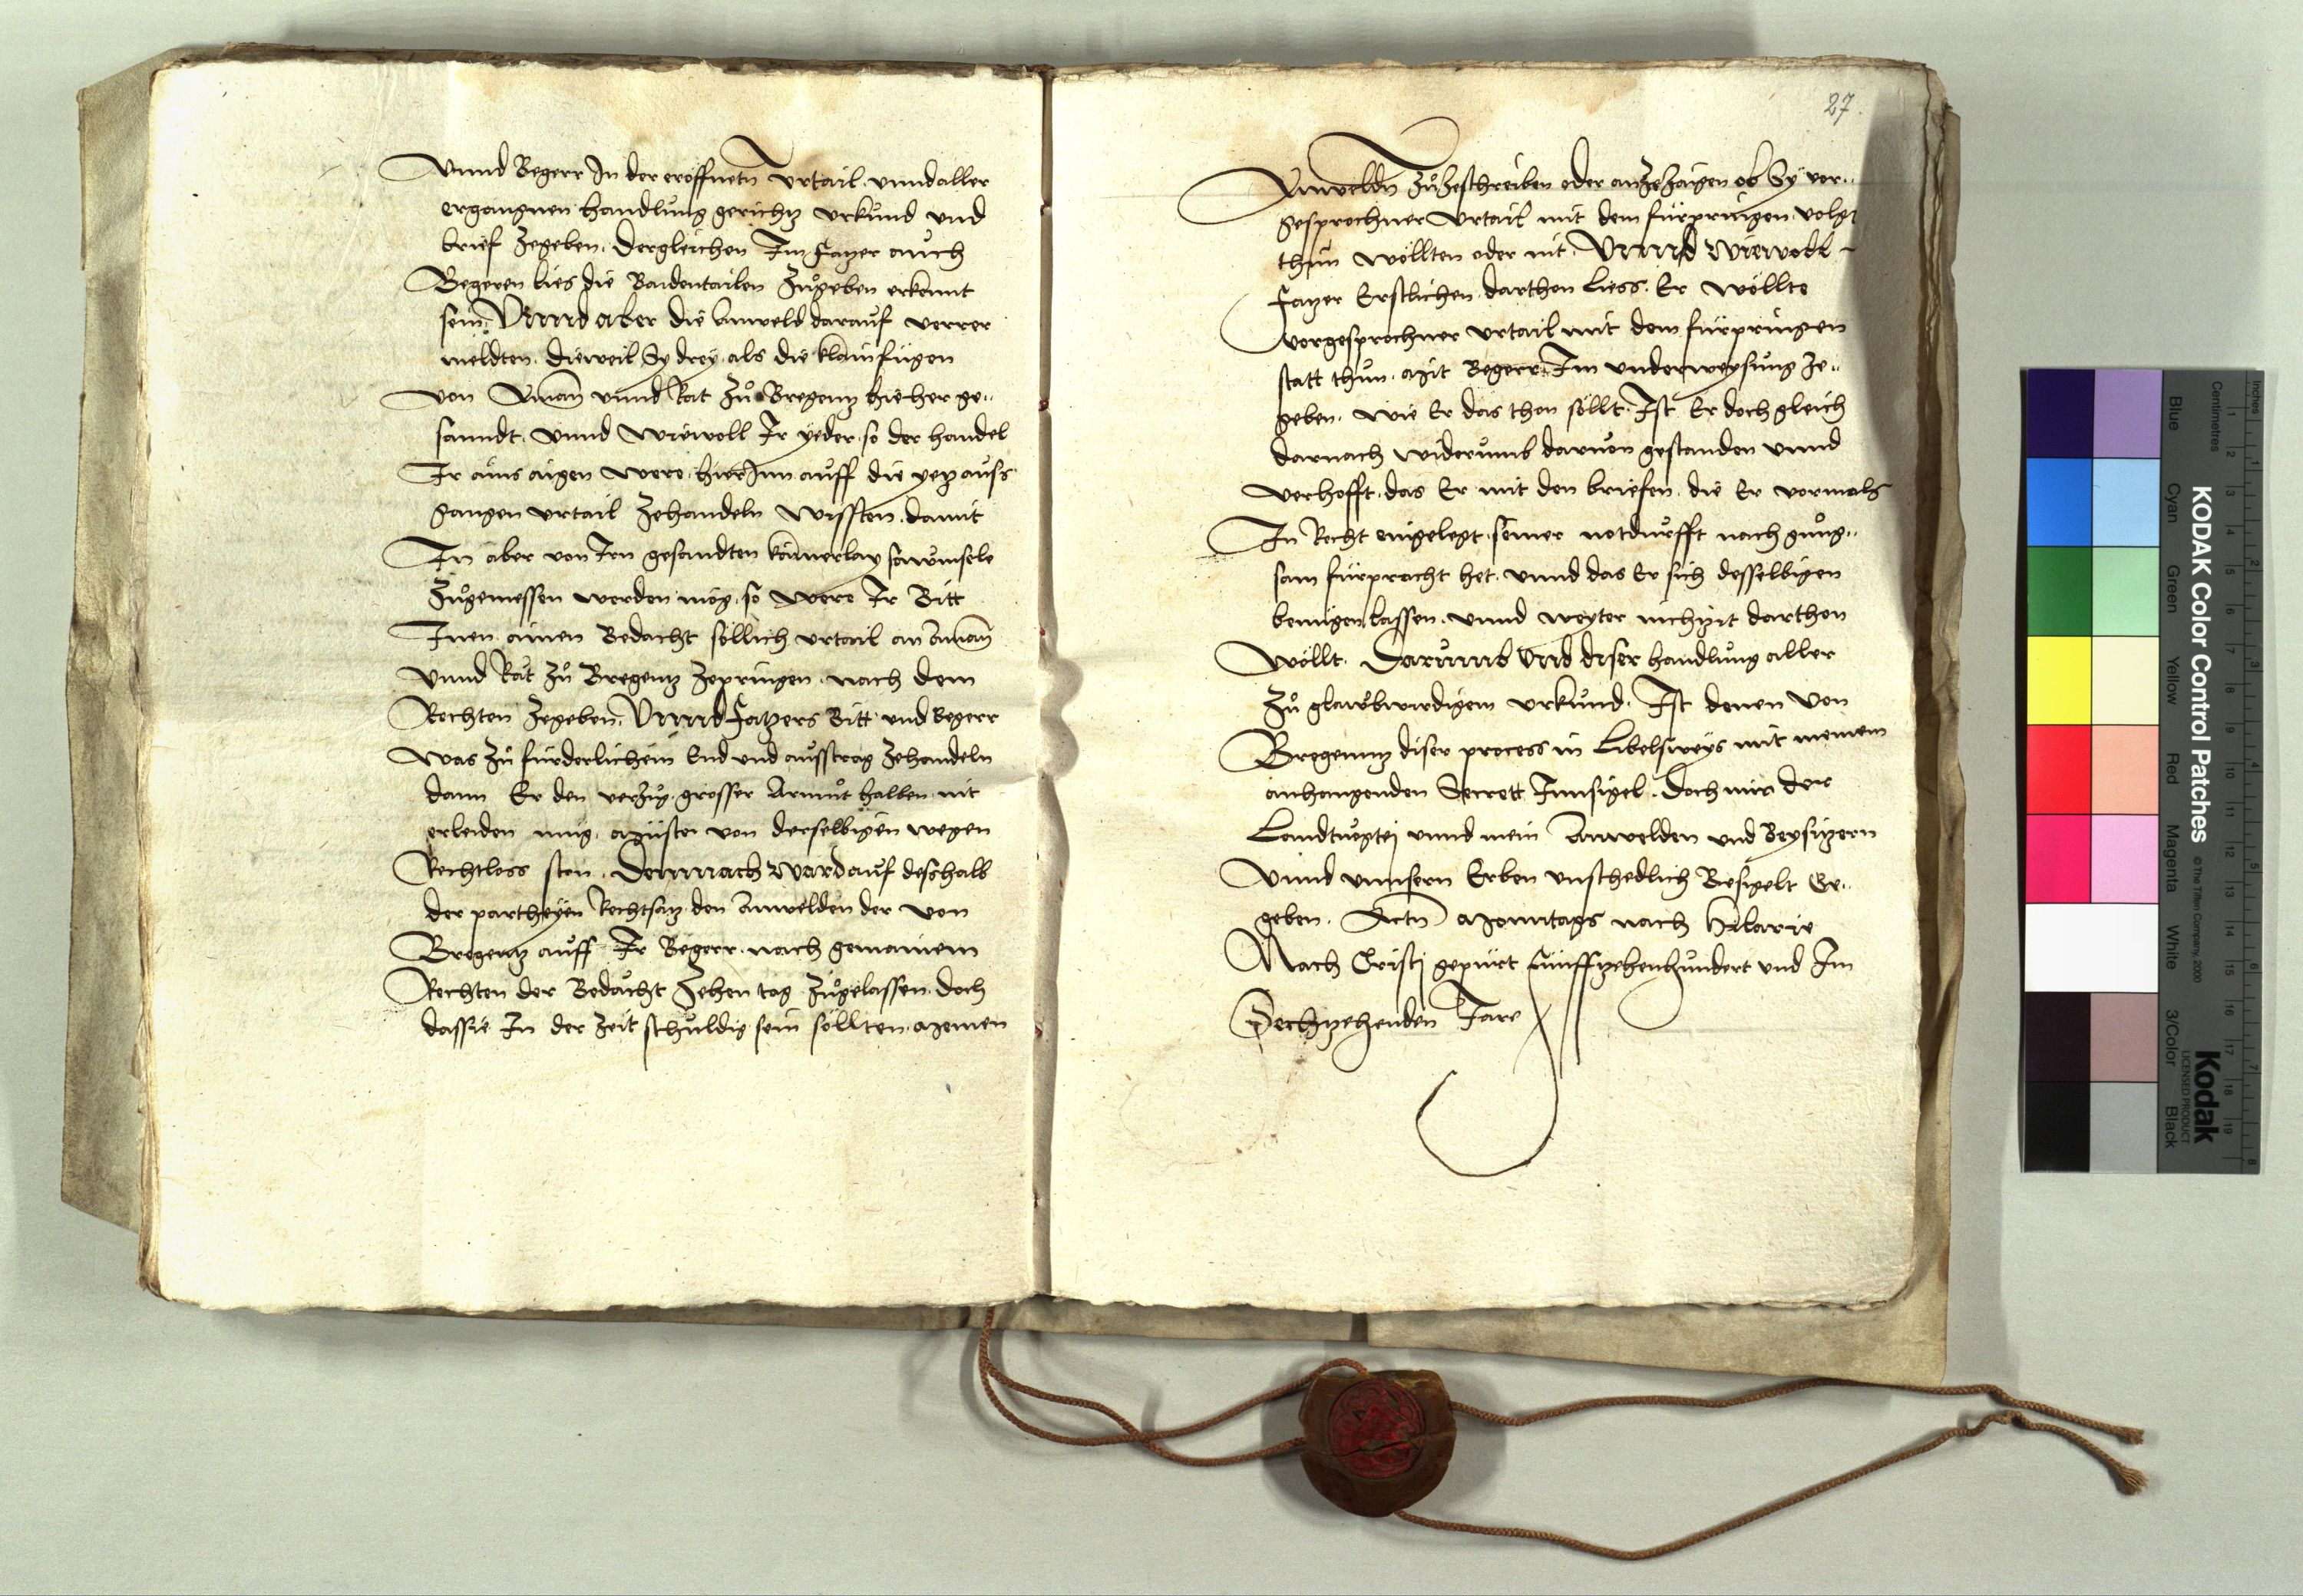 Vnnd Begerr In der eröffnetn Vrtail vnnd aller
ergangnen handlung gerichtz vrkund vnd
brief Zegeben. Dergleichen Im Fatzer auch
Begeren lies die Baidentailen Zůgeben erkennt
sein. Vnnd aber die Anweld darauf verrer
meldten. dieweil Sy drey als die klainfügen
von Aman vnnd Rat Zů Bregentz hieher ge-
sanndt. Vnnd Wiewoll Ir yeder so der handel
Ir ains aigen were. hierInn auff die yetz auss
gangen vrtail Zehandeln Wissten. damit
In aber von Irn gesandten kainerlay
Zůgemessen werden mög. so were Ir Bitt
Inen ainen Bedacht söllich vrtail an Aman
Vnnd Rat Zů Bregentz Zepringen. nach dem
Rechten Zegeben. Vnnd Fatzers Bitt vnd begerr
Was Zů fürderlichem End vnd ausstrag Zehandeln
dann Er den verzug grosser Armůt halben nit
erleiden müg. Müste von derselbigen wegen
Rechtloss sten. Demnach Ward auf desshalb
der partheyen Rechtsatz den Anwelden der von
Bregentz auff Ir Begerr nach gemainem
Rechten der Bedacht Zehen tag Zůgelassen. doch
dassie In der Zeit schuldig sein söllten Meinen
27
Anweldn Zůzeschreiben oder anzezaigen ob Sy vor-
gesprochner Vrtail mit dem fürpringen volg
thun wöllten oder nit. Vnnd Wiewoll
Fatzer Erstlichen darthon liess. Er wöllte
vorgesprochner vrtail mit dem fürpringen
statt thun. Mit Begerr Im vnderweysung Ze-
geben. wie Er das thon söllt. Ist Er doch gleich
darnach widerumb daruon gestanden vnnd
verhofft. das Er mit den briefen. die Er vormals
In Recht eingelegt. seiner notdurfft nach gnůg-
sam fürpracht het. vnnd das Er sich desselbigen
benügen lassen. vnnd weyter nichzit darthon
Wöllt. Darumb Vnd diser handlung aller
Zů glaubwirdigem vrkund. Ist denen von
Bregenntz diser process in Libelsweys mit meinem
anhangenden Secrett Innsigel. Doch mir der
Landtuogtej vnnd mein Anwelden vnd Beysitzern
Vnnd vnnsern Erben vnschedlich Besigelt Ge-
geben. Actn Monntags nach Hilarie
Nach Cristj gepürt Fünffzehenhundert vnd Im
Sechzehenden Jare
KODAK Color Control Patches
© The Tiffen Company, 2000
Kodak
LICENSED PRODUCT
Inches
Centimetres
Blue Cyan Green Yellow Red Magenta White 3/Color Black